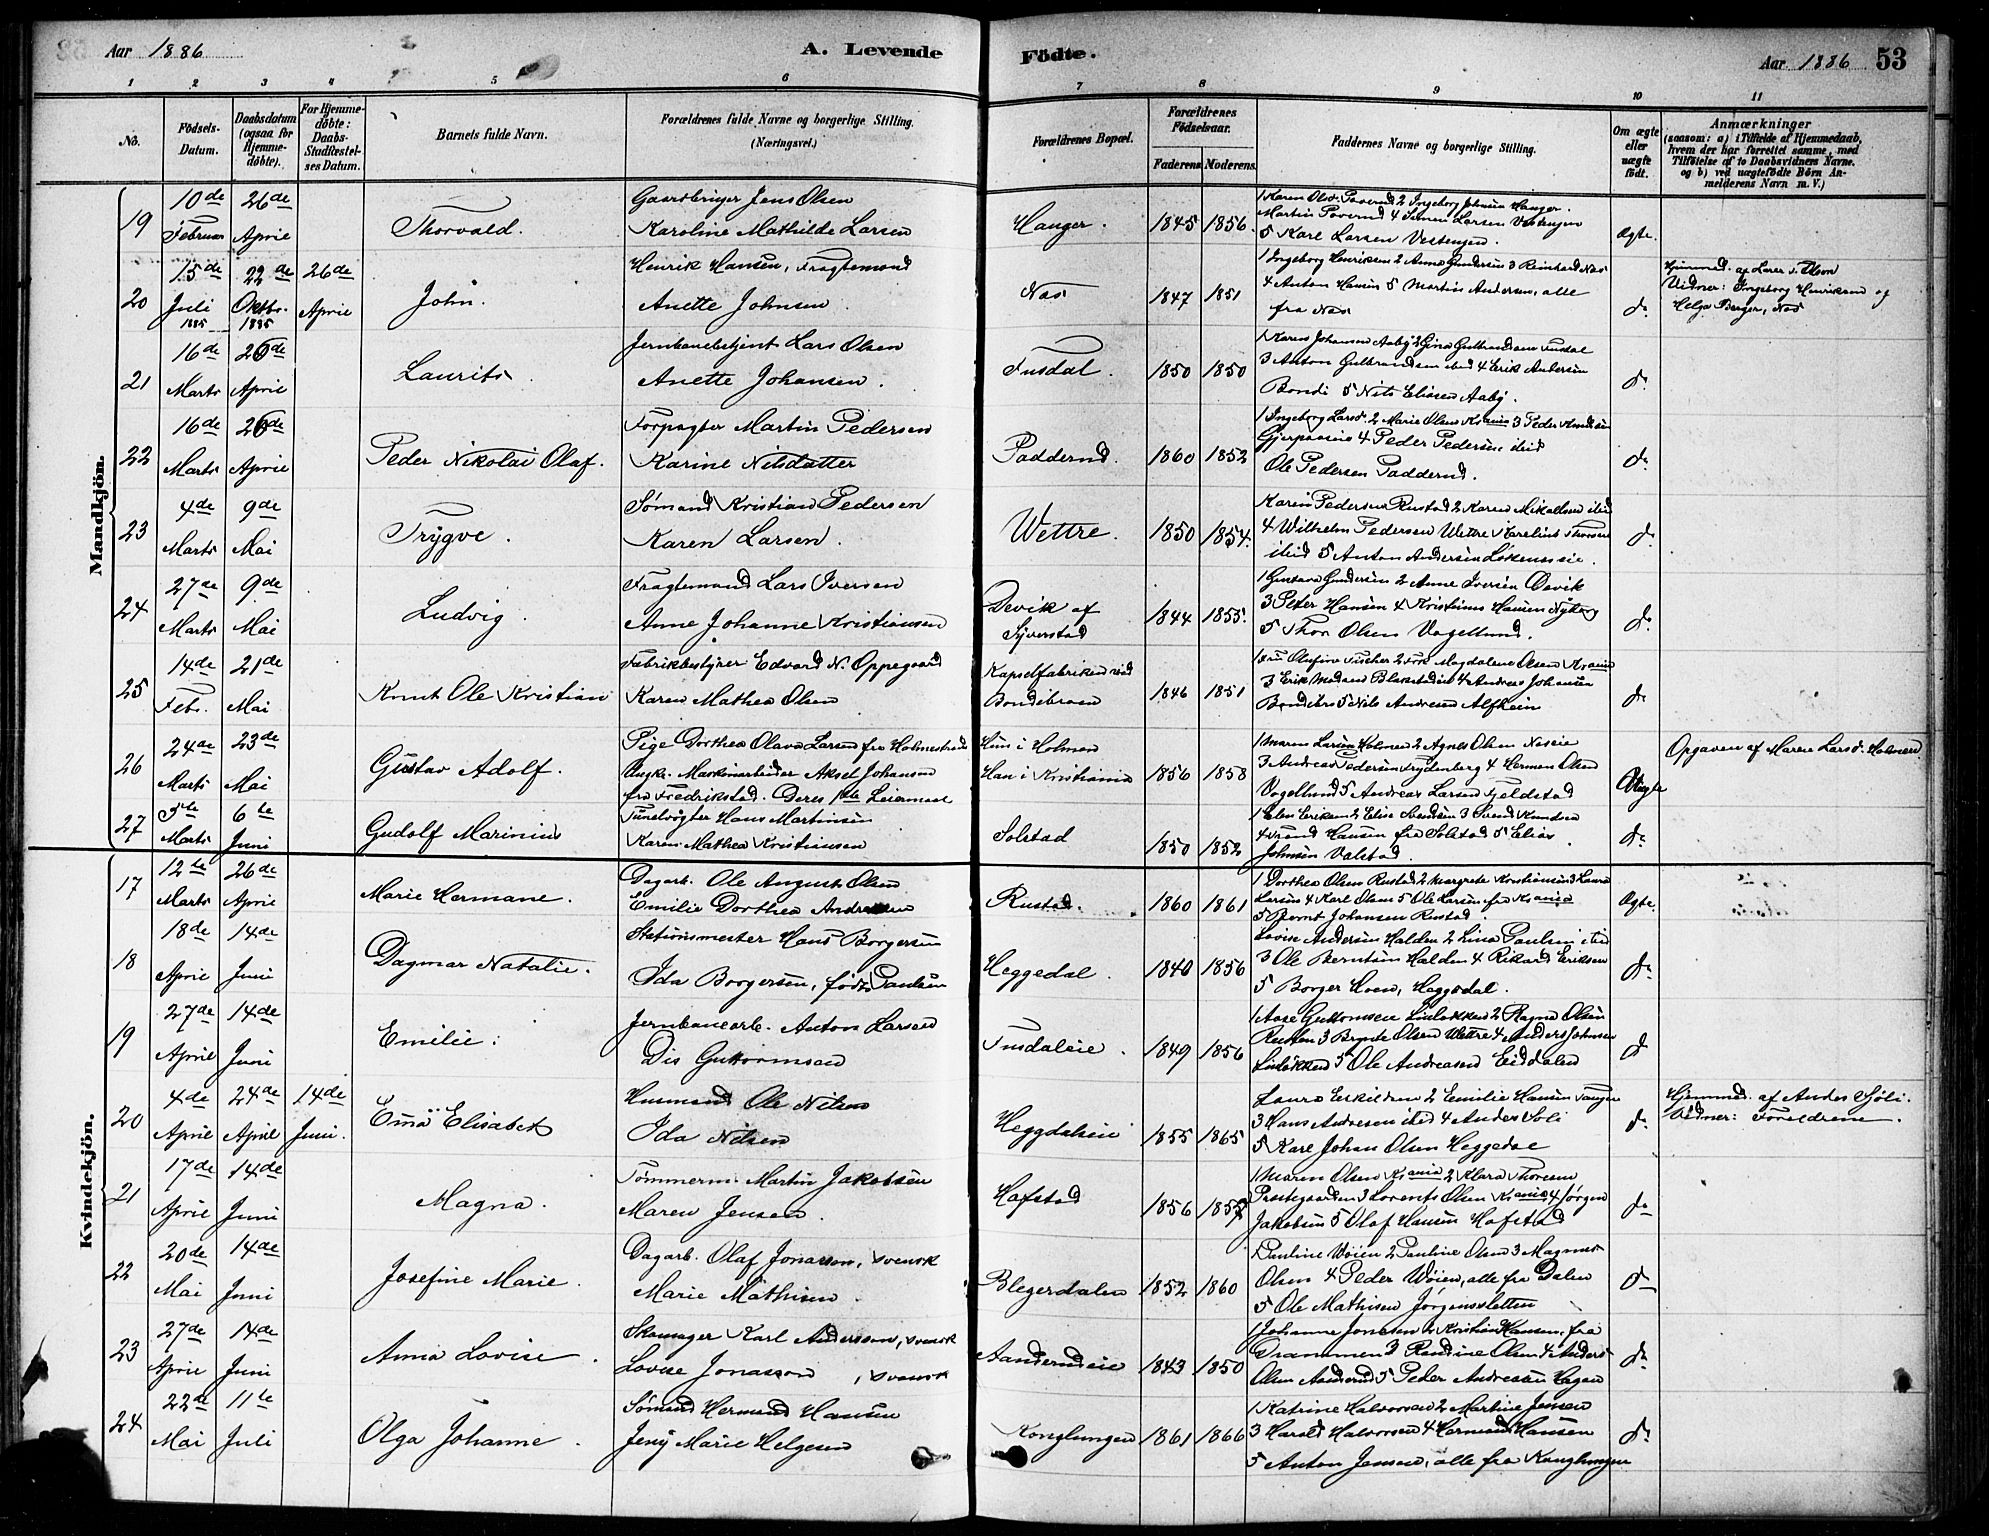 Aar 1886
A. Levende
Födte.
Aar 1886
53
1 2 3 4 5 6 7 8 9 10 11
No.
Födsels-Datum.
Daabsdatum (ogsaa för Hjemme-döbte).
For Hjemme-döbte: Daabs-Stadfæstel-ses Datum.
Barnets fulde Navn.
Forældrenes fulde Navne og borgerlige Stilling. (Næringsvei.)
Forældrenes Bopæl.
Forældrenes Födselsaar.
Faderens. Moderens.
Faddernes Navne og borgerlige Stilling.
Om ægte eller uægte födt.
Anmærkninger
(saasom: a) i Tilfælde af Hjemmedaab, hvem der har forrettet samme, med Tilföielse af to Daabsvidners Navne. og b) ved uægtefödte Börn An-melderens Navn m. V.)
Mandkjön.
19 10de Februar 26de April Thorvald. Gaardbruger Jens Olsen
Karoline Mathilde Larsen Hanger. 1845 1856.
Martin Poverud 4 Simen Larsen Vestengen
5 Karl Larsen Vestengen. Ægte.
20 15de Juli 1885 22de Oktbr. 1885 26de April John. Henrik Hansen, Fragtemand
Anette Johnsen Næs 1847 1851
1 Ingeborg Henriksen 2 Anna Gundersen 3 Reinhard Næs
4 Anton Hansen 5 Martin Andersen, alle
fra Næs do
Vidner: Ingeborg Henriksen og
Helga Berger, Næs
21 16de Marts 26de April Laurits. Jernbanebetjent Lars Olsen
Anette Johansen. Fusdal. 1850 1850
1 Karen Johansen Aaby 2 Gina Gulbrandsen Fusdal
3 Anton Gulbrandsen ibid 4 Erik Andersen
Bondi 5 Nils Eliasen Aaby. do
22 16de Marts 26de April Peder Nikolai Olaf. Forpagter Martin Pedersen
Karine Nilsdatter Paddernd. 1860 1852
1 Ingeborg Larsd. 2 Marie Olsen Kr.ania 3 Peder Knudsen
4 Peder Pedersen ibid
Ole Pedersen Paddernd. do
23 4de Marts 9de Mai Trygve. Sømand Kristian Pedersen
Karen Larsen. Wettre. 1850 1854.
Karen Pedersen Rustad 2 Karen Mikaelsen ibid
4 Wilhelm Pedersen Wettre
ibid 5 Anton Andersen do
24 27de Marts 9de Mai Ludvig. Fragtemand Lars Iversen
Anne Johanne Kristiansen Devik af
Syverstad 1844 1855.
1 Gustava Gundersen 2 Anne Iversen Devik
3 Peter Hansen 4 Kristians Hansen Nyborg
5 Thor Olsen Vogellund. do
25 14de Febr. 21de Mai Knut Ole Kristian Fabrikbestyrer Edvard N. Oppegaard
Karen Mathea Olsen Kapselfabriken ved
Bondibroen 1846 1851
1 Fru Olufine Fischer 2 Frk Magdalene Olsen Kr.ania
3 Erik 4 Andreas Johansen
Bondibro 5 Nils Andresen Alfheim do
26 24de Marts 23de Mai Gustav Adolf. Pige Dorthea Olava Larsen fra Holmestrand
Ungk. Maskinarbeider Aksel Johansen
fra Fredrikstad. Deres 1ste Leiermaal
Hun i Holmen
Han i Kristiania 1856 1858
1 Maren Larsen Holmen 2 Agnes Olsen Næseie
3 Andreas Pedersen Frydenberg 4 Herman Olsen
Vogellund 5 Andreas Larsen Fjeldstad Uægte
Opgaven af Maren Larsd. Holmen
27 5te Marts 6te Juni Gudolf Marinius Tunelvogter Hans Martinsen
Karen Mathea Kristiansen Solstad 1850 1852
1 Elen Eriksen 2 Elise Svendsen 3 Svend Knudsen
4 Hansen fra Solstad 5 Elias
Johnsen Valstad. do
Kvindekjön.
17 12te Marts 26de April Marie Hermane. Dagarb. Ole August Olsen
Emilie Dorthea Andresen Rustad. 1860 1861
1 Dorthea Olsen Rustad 2 Margrete Kristiansen 3 Laura
Larsen 4 Karl Olsen 5 Ole Larsen fra Kr.ania
5 Bernt Johansen Rustad. Ægte.
18 18de April 14de Juni Dagmar Natalie. Stationsmester Hans Borgersen
Ida Borgersen, født Paulsen Heggedal. 1840 1856
Lovise Andersen Halden 2 Lina Paulsen ibid
3 Ole Berntsen Halden 4 Rikard Eriksen
5 Borger Hoen, Heggedal. do
19 27de April 14de Juni Emilie. Jernbanearb. Anton Larsen
Dis Guttormsen Fusdaleie. 1849 1856
1 Aase Guttormsen 2 Ragna Olsen
Rusten 3 Brynte Olsen Wettre 4 Anders Johnsen
5 Ole Andreasen Eiddalen do
20 4de April 24de April 14de Juni. Emma Elisabet Husmand Ole Nilsen
Ida Nilsen Heggdaleie 1855 1865
Laura Eskildsen 2 Emilie Hansen Tangen
3 Hans Andresen ibid 4 Anders Soli
5 Karl Johan Olsen Heggedal do
Hjemmed. af Anders Sjøli.
Vidner: Foreldrene.
21 17de April 14de Juni Magna. Tømmerm. Martin Jakobsen
Maren Jensen. Hofstad 1856 1857
1 Maren Olsen Kr.ania 2 Klara Thoresen
Prestegaarden 3 Lorents Olsen Kr.ania 4 Jørgen
Jakobsen 5 Olaf Hansen Hofstad do
22 20de Mai 14de Juni Josefine Marie. Dagarb. Olaf Jonasson, svensk
Marie Mathisen Blegerdalen 1852 1860
1 Pauline Wøien 2 Pauline Olsen 3 Magnus
Olsen 4 Peder Wøien, alle fra Dalen
5 Ole Mathisen Jørgensletten do
23 27de April 14de Juni Anna Lovise. Skomager Karl Andersson, svensk
Lovise Jonasson, svensk Aanderudeie 1843 1850
1 Johanne Jonasen 2 Kristian Hansen, fra
Drammen 3 Randine Olsen 4 Anders
Olsen Aanderud 5 Peder Andresen Hagen do
24 22de Mai 11te Juli Olga Johanne. Sømand Hermand Hansen
Jeny Marie Helgesen Konglungen 1861 1866
1 Katrine Halvorsen 2 Martine Jensen
3 Harald Halvorsen 4 Hermand Hansen
5 Anton Jensen, alle fra Konglungen do